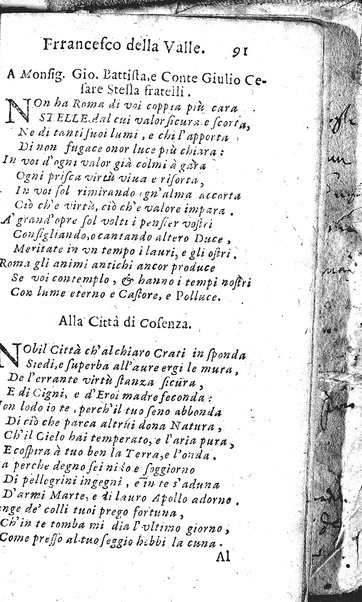 Frrancesco della Valle. 91
A Monsig. Gio. Battista, e Conte Giulio Ce-
sare Stella fratelli.
NOn ha Roma di voi coppia più cara
STELLE, dal cui valor sicura e scorta,
Ne di tanti suoi lumi, e chi l'apporta
Di non fugace onor luce più chiara:
In voi d'ogni valor già colmi à gara
Ogni prisca virtù viua e risorta,
In voi sol rimirando ogn'alma accorta
Ciò ch'e virtù, ciò ch'e valore impara.
A' grand'opre sol volti i pensier vostri
Consigliando, o cantando altero Duce,
Meritate in un tempo i lauri, e gli ostri.
Roma gli animi antichi ancor produce
Se voi contemplo, & hanno i tempi nostri
Con lume eterno e Castore, e Polluce.
Alla Città di Cosenza.
NObil Città ch'al chiaro Crati in sponda
Stedi, e superba all'aure ergi le mura,
De l'errante virtù stanza sicura,
E di Cigni, e d'Eroi madre feconda:
on lodo io te, perch'il tuo seno abbonda
Di ciò che parca altrui dona Natura,
Ch'il Cielo hai temperato, e l'aria pura,
E cospira à tuo ben la Terra, e l'onda.
a perche degno sei nido e soggiorno
Di pellegrini ingegni, e in te s'aduna
D'armi Marte, e di lauro Apollo adorno.
nge de' colli tuoi prego fortuna,
Ch'in te tomba mi dia l'vltimo giorno,
Come presso al tuo seggio hebbi la cuna.
Al